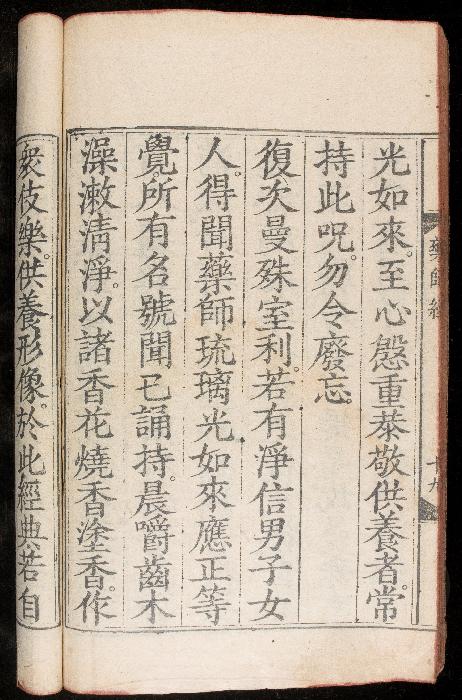 藥師經
十九
光如來。至心慇重恭敬供養者。常
持此呪。勿令廢忘。
復次曼殊室利。若有淨信男子女
人。得聞藥師琉璃光如來應正等
覺。所有名號。聞已誦持。晨嚼齒木
澡漱清淨。以諸香花燒香塗香。作
衆伎樂。供養形像。於此經典。若自